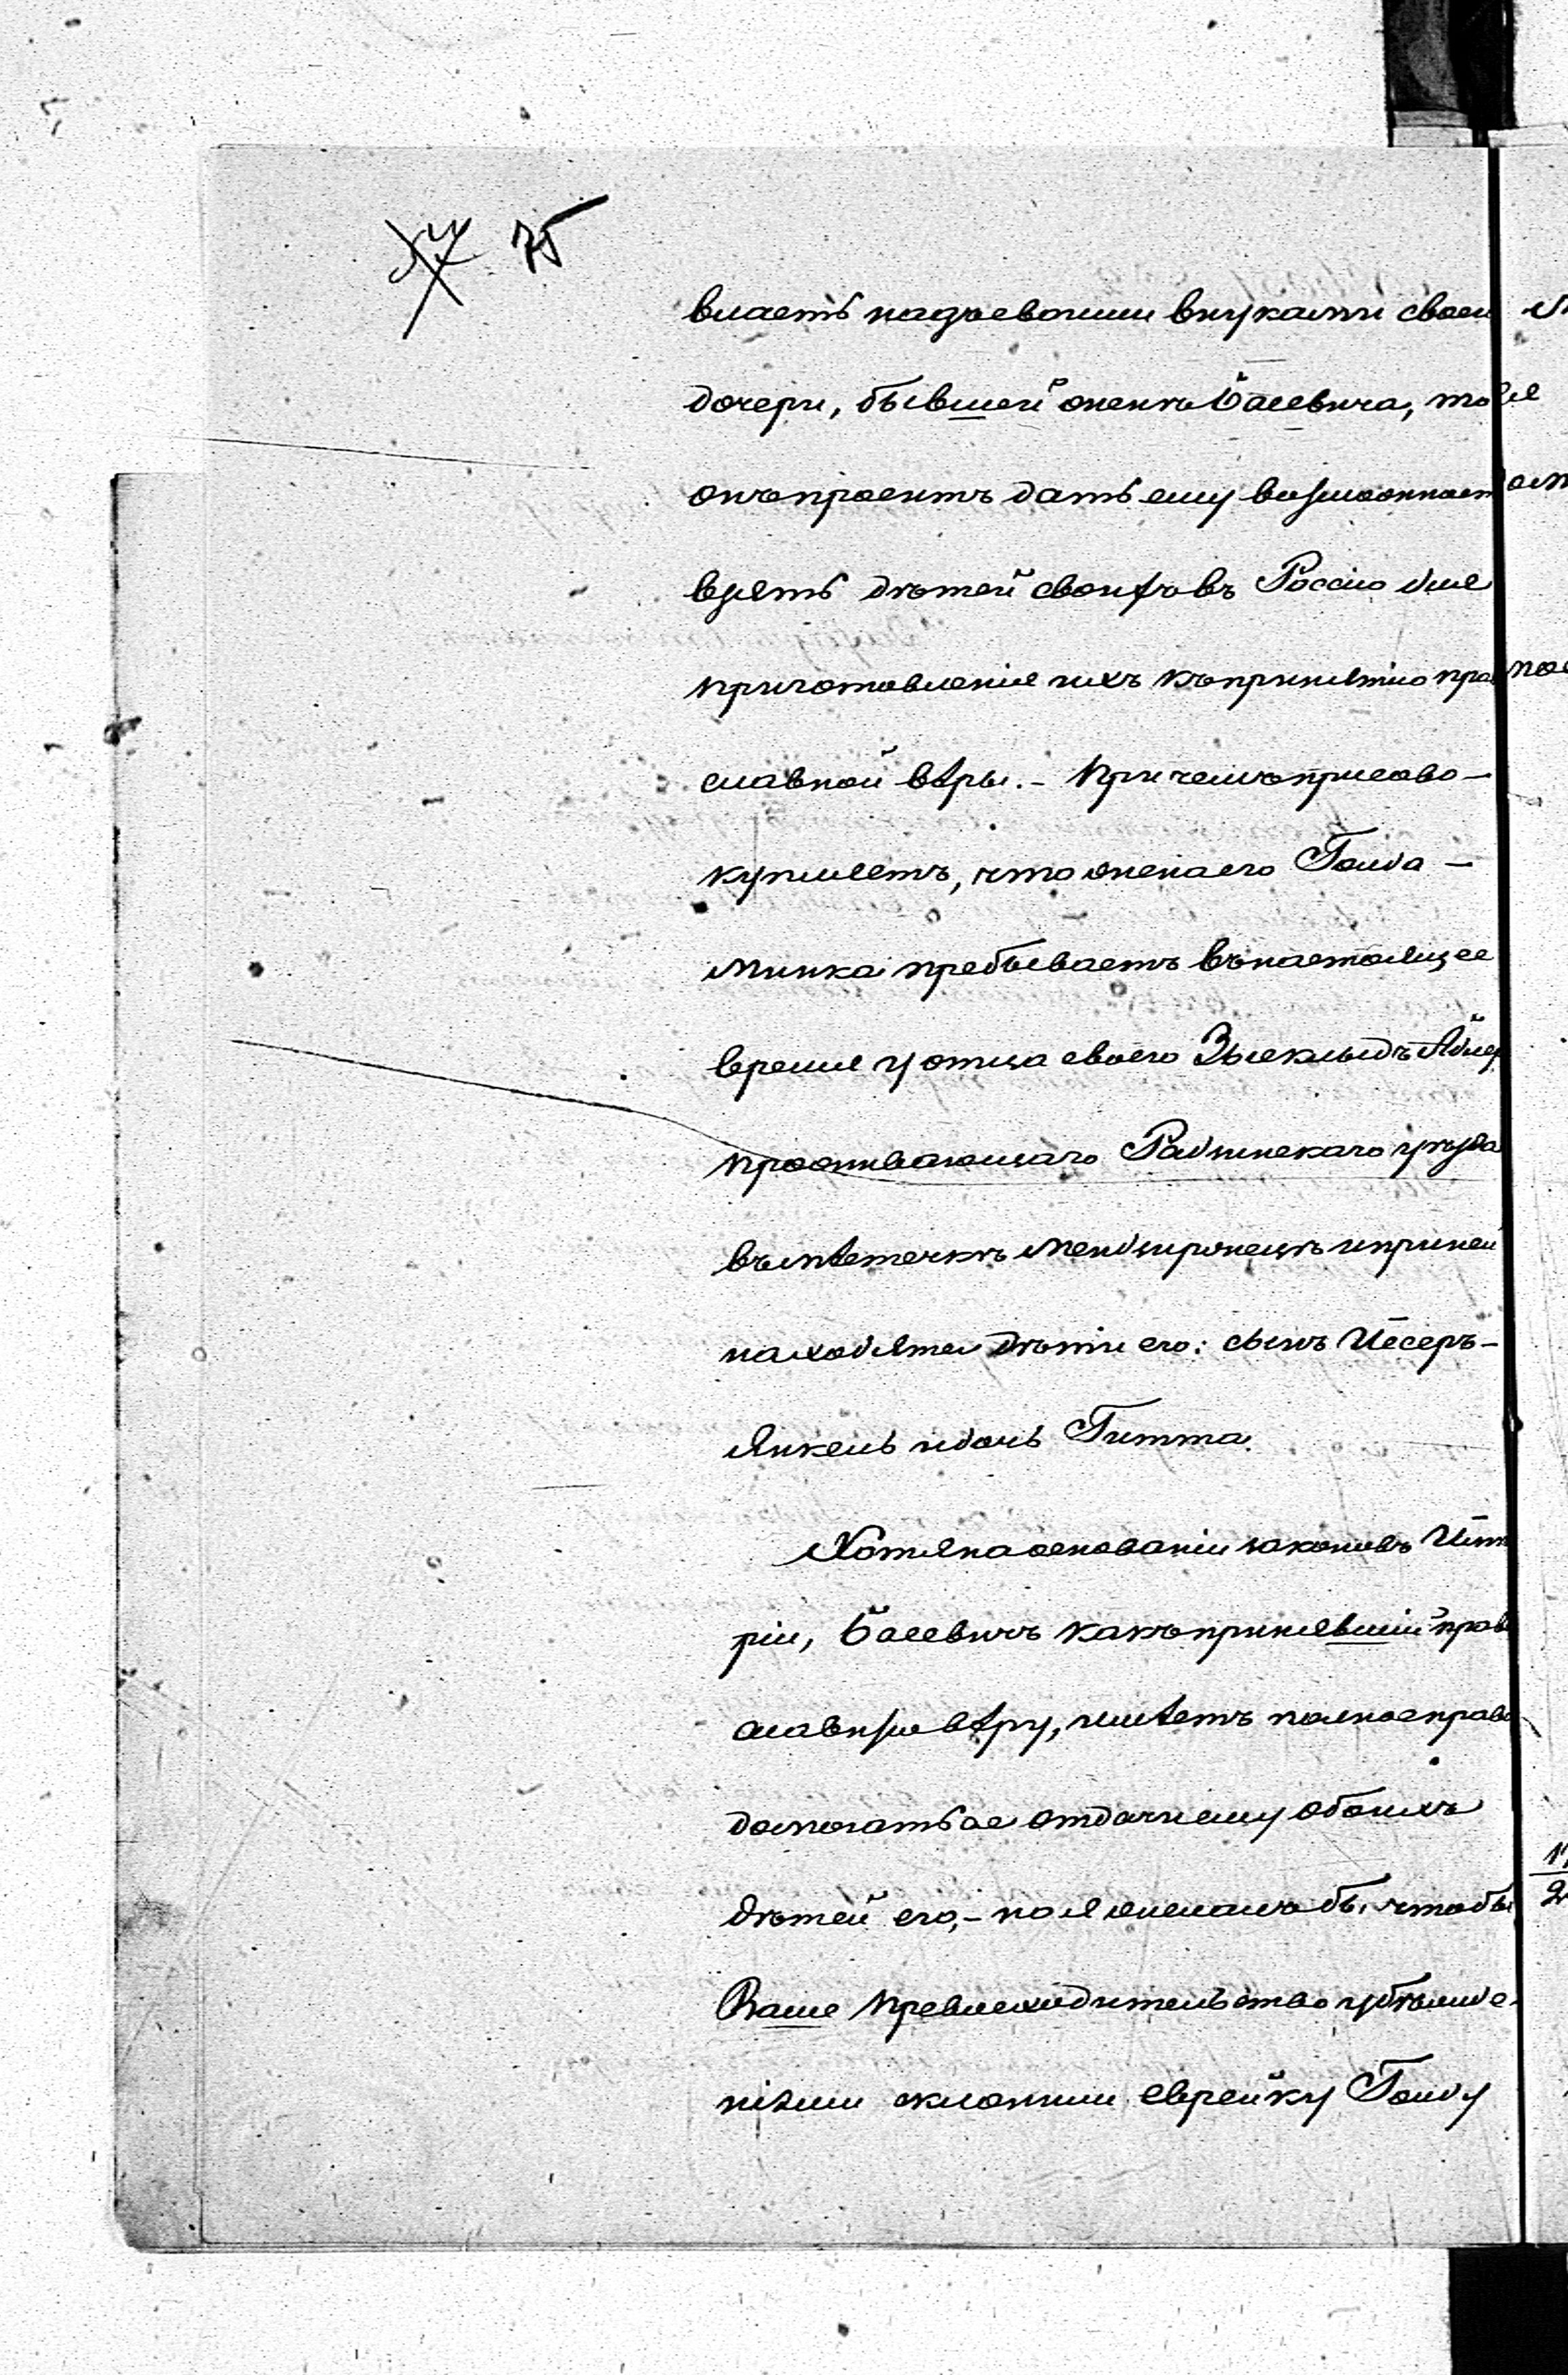 75
власть надъ евоими внуками своей
дочери, бывшей жены Басевича, то
онъ проситъ дать ему возможност
взять дѣтей своихъ въ Россію для
приготовленія ихъ къ принятію пра
славной вѣры. - При чемъ присово-
купляетъ, что жена его Голда -
Минка пребываетъ въ настоящее
время у отца своего
проживающаго Радинскаго уѣзда
въ мѣстечкѣ и при ней
находятся дѣти его: сынъ Іесеръ-
Янкель и дочь Гитта.
Хотя на основаніи законовъ Имп
ріи, Басевичъ какъ принявшій прав
славную вѣру, имѣетъ полное право
домогаться отдачи ему обоихъ
дѣтей его, - но я желалъ бы, чтобы
Ваше Превосходительство убѣжде-
ніями склонили еврейку Голду